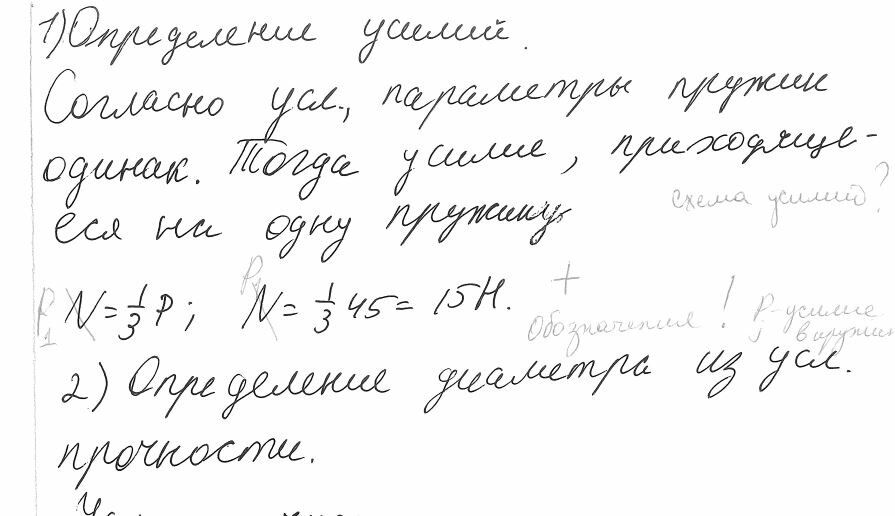 1) Определение усилий.
Согласно усл., параметры пружин
одинак. Тогда усилие, приходяще-
еся на одну пружину
схема усилий?
P₁ N = 1/3 P; P₁ N = 1/3 45 = 15Н. +
Обозначения! P - усилие
в пружин
2) Определение диаметра из усл.
прочности.